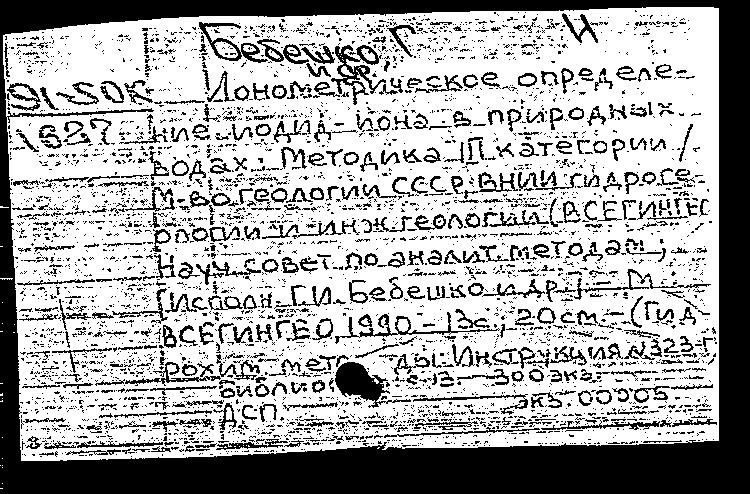 Бебешко, Г И
и др.
91-50К
1627
Ионометрическое определе-
ние иодид-иона в природных
водах: Методика III категории /
М-во геологии СССР, ВНИИ гидроге-
ологии и инж. геологии (ВСЕГИНГЕО
Науч. совет по аналит. методам;
[Исполн. Г.И. Бебешко и др.]. - М.:
ВСЕГИНГЕО, 1990 - 13с.; 20см - (Гид-
рохим. методы: Инструкция N323-Г)
Библиогр.: с. 13. - 300экз.
ДСП. экз. 00005